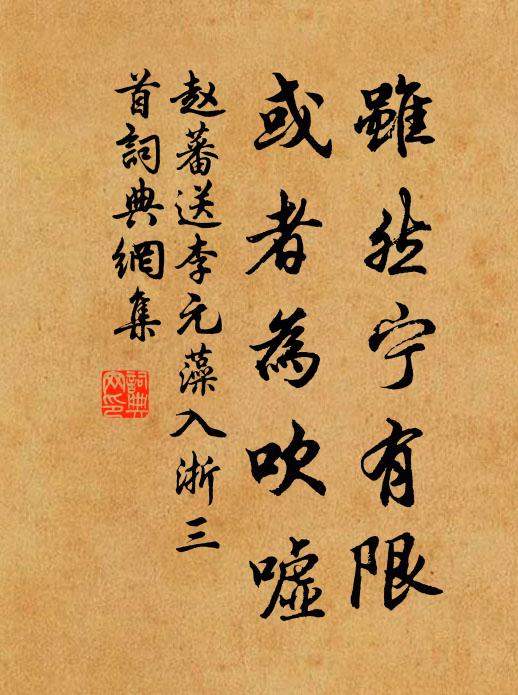 雖然宁有限
或者為吹嘘
赵蕃送李元藻入浙三
首詞典網集
詞典
网印